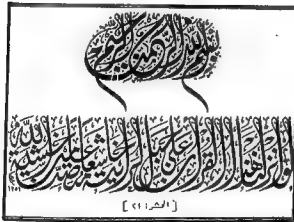 بسم الله الرحمن الرحيم
لو أنزلنا هذا القرآن على جبل لرأيته خاشعا متصدعا من خشية الله
[الحشر: ٢١]